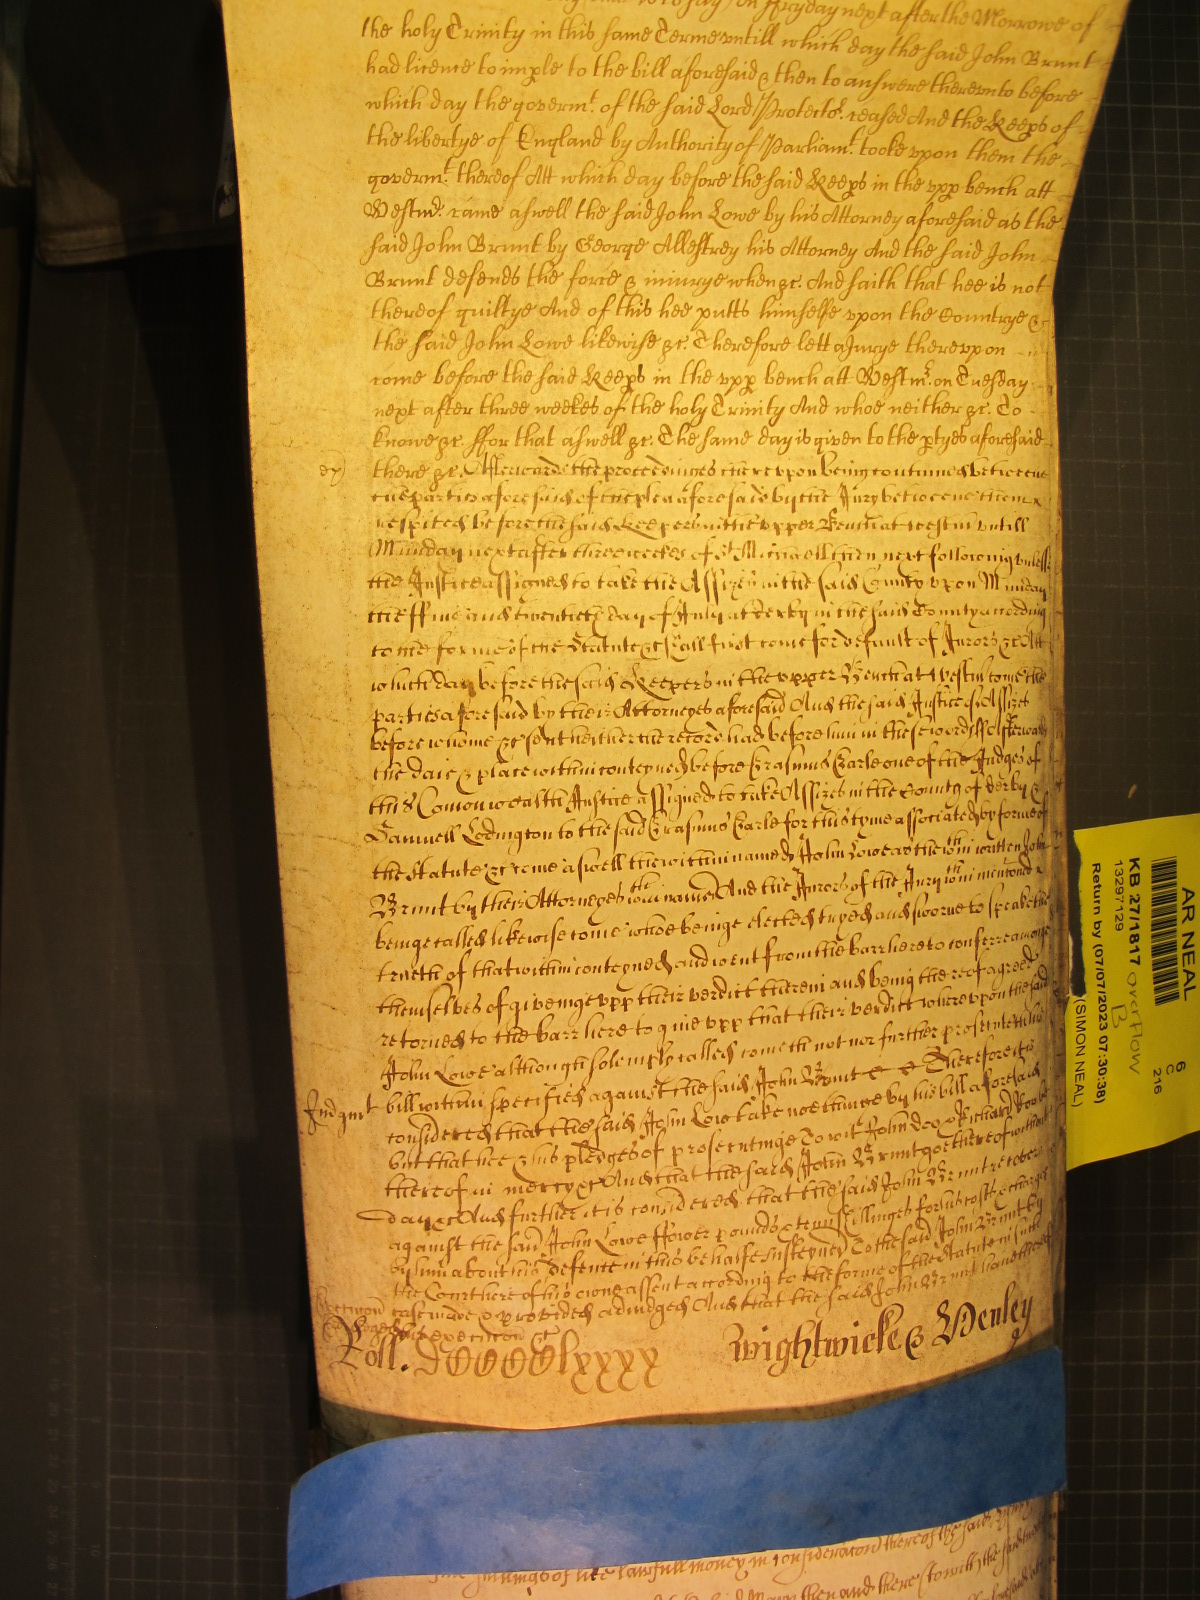 to say / on ffryday next after the Morrowe of
the holy Trinity in this same Terme untill which day the said John Brunt
had licence to imple to the bill aforesaid & then to answere thereunto before
which day the governmt. of the said Lord Protector. ceased And the Keeps of
the libertye of England by Authority of Parliamt. tooke upon them the
governmt. thereof Att which day before the said Keeps in the upp bench att
Westmr. came aswell the said John Lowe by his Attorney aforesaid as the
said John Brunt by George Allestrey his Attorney And the said John
Brunt defends the force & iniurye when &c. And saith that hee is not
thereof guiltye And of this hee putts himselfe upon the Countrye &
the said John Lowe likewise &c. Therefore lett a Jurye thereupon
come before the said Keeps in the upp bench att Westmr. on Tuesday
next after three weekes of the holy Trinity And whoe neither &c. To
knowe &c. ffor that aswell &c. The same day is given to the ptyes aforesaid
there &c. Afterwards the proceedinges thereupon being continued betweene
the parties aforesaid of the plea aforesaid by the Jury betweene them
respited before the said Keepers in the upper Bench at Westm untill
Munday next after three weekes of St Michaell then next following unlesse
the Justices assigned to take the Assizes in the said County upon Munday
the ffive and twentieth day of July at Derby in the said County according
to the forme of the Statute &c shall first come for default of Jurors &c Att
which day before the said Keepers in the upper Bench at Westm come the
parties aforesaid by their Attorneyes aforesaid And the said Justices of Assizes
before whome &c sent hether the record had before him in these words ss Afterwards
the daie & place within conteyned before Erasmus Earle one of the Judges of
the Comon wealth Justice assigned to take Assizes in the County of Derby &
Samuell Lodington to the said Erasmus Earle for this tyme associated by forme of
the Statute &c come aswell the within named John Lowe as the wthin written John
Brunt by their Attorneyes wthin named And the Jurors of the Jury wthin mentioned
beinge called likewise come whoe beinge elected tryed and sworne to speake the
trueth of that within conteyned and went from the barr here to conferre amongst
themselves of giveinge upp their verdict therein and being thereof agreed
retorned to the barr here to give upp that their verdict whereupon the said
John Lowe although solemply called cometh not nor further prosecuteth his
bill within specified against the said John Brunt Therefore itt is
Judgmt considered that the said John Low take nothinge by his bill aforesaid
but that hee & his pledges of prosecutinge To wit John doo & Richard Roo be
thereof in mercy &c And that the said John Brunt goe thereof without
day &c And further it is considered that the said John Brunt recover
against the said John Lowe ffower pounds & tenn shillinges for his costs & charges
by him about his defence in this behalfe susteyned To the said John Brunt by
the Court here of his owne assent according to the forme of the Statute in such
case made & provided adiudged And that the said John Brunt have thereof
execucon &c
Roll. DCCCClxxxx Wightwicke & Henley
lawfull money in consideracon thereof the said
then and there (to witt) the
AR NEAL
KB 27/1817 overflow
B
13297129
Return by (07/07/2023 07:30:38)
(SIMON NEAL)
6
C
216